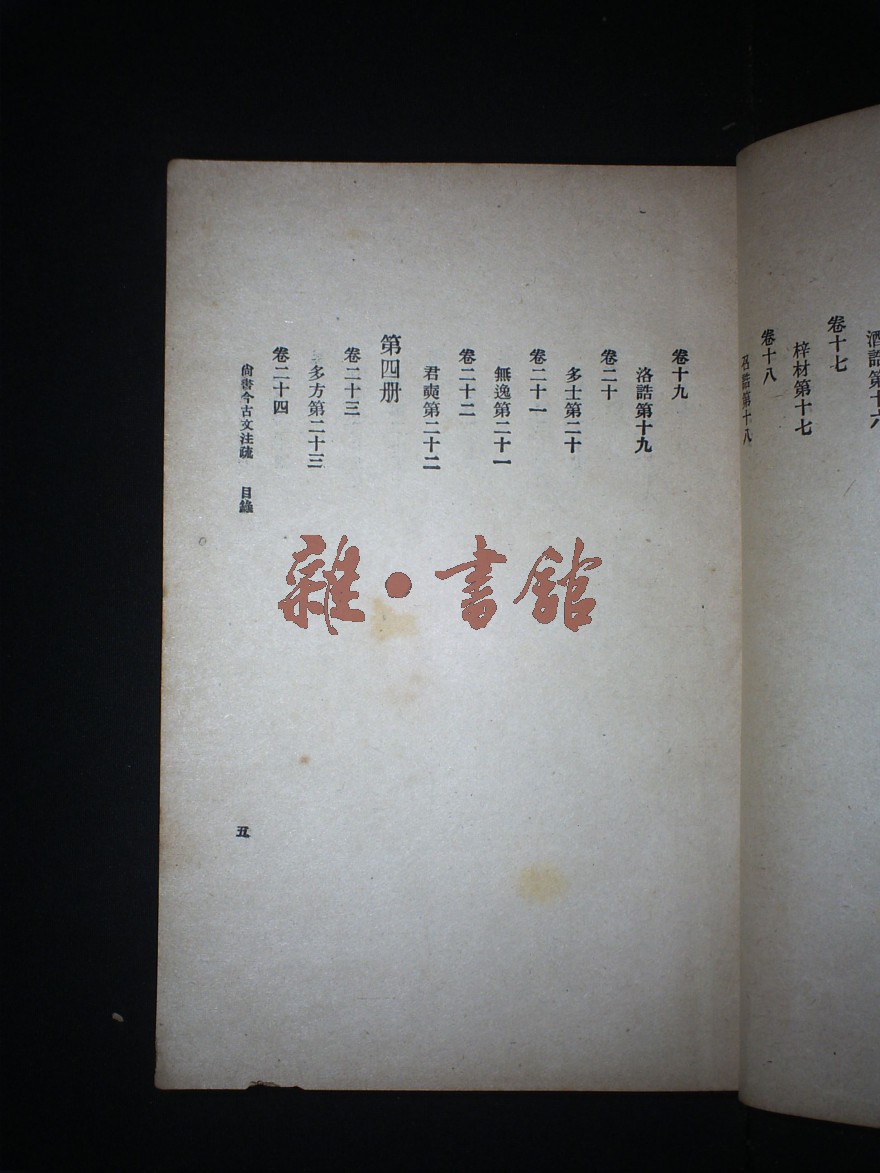 酒誥第十六
卷十七
梓材第十七
卷十八
召誥第十八
卷十九
洛誥第十九
卷二十
多士第二十
卷二十一
無逸第二十一
卷二十二
君奭第二十二
第四册
卷二十三
多方第二十三
卷二十四
尙書今古文注疏 目錄
五
雜·書館